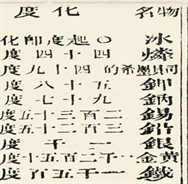 物名 化度
冰 ○起度即化
燐 四十四度
司貝瑪希的 四十九度
鉀 五十八度
鈉 九十七度
錫 二百三十五度
鉛 三百二十五度
銀 一千度
黃金 一千二百五十度
鐵 一千五百度